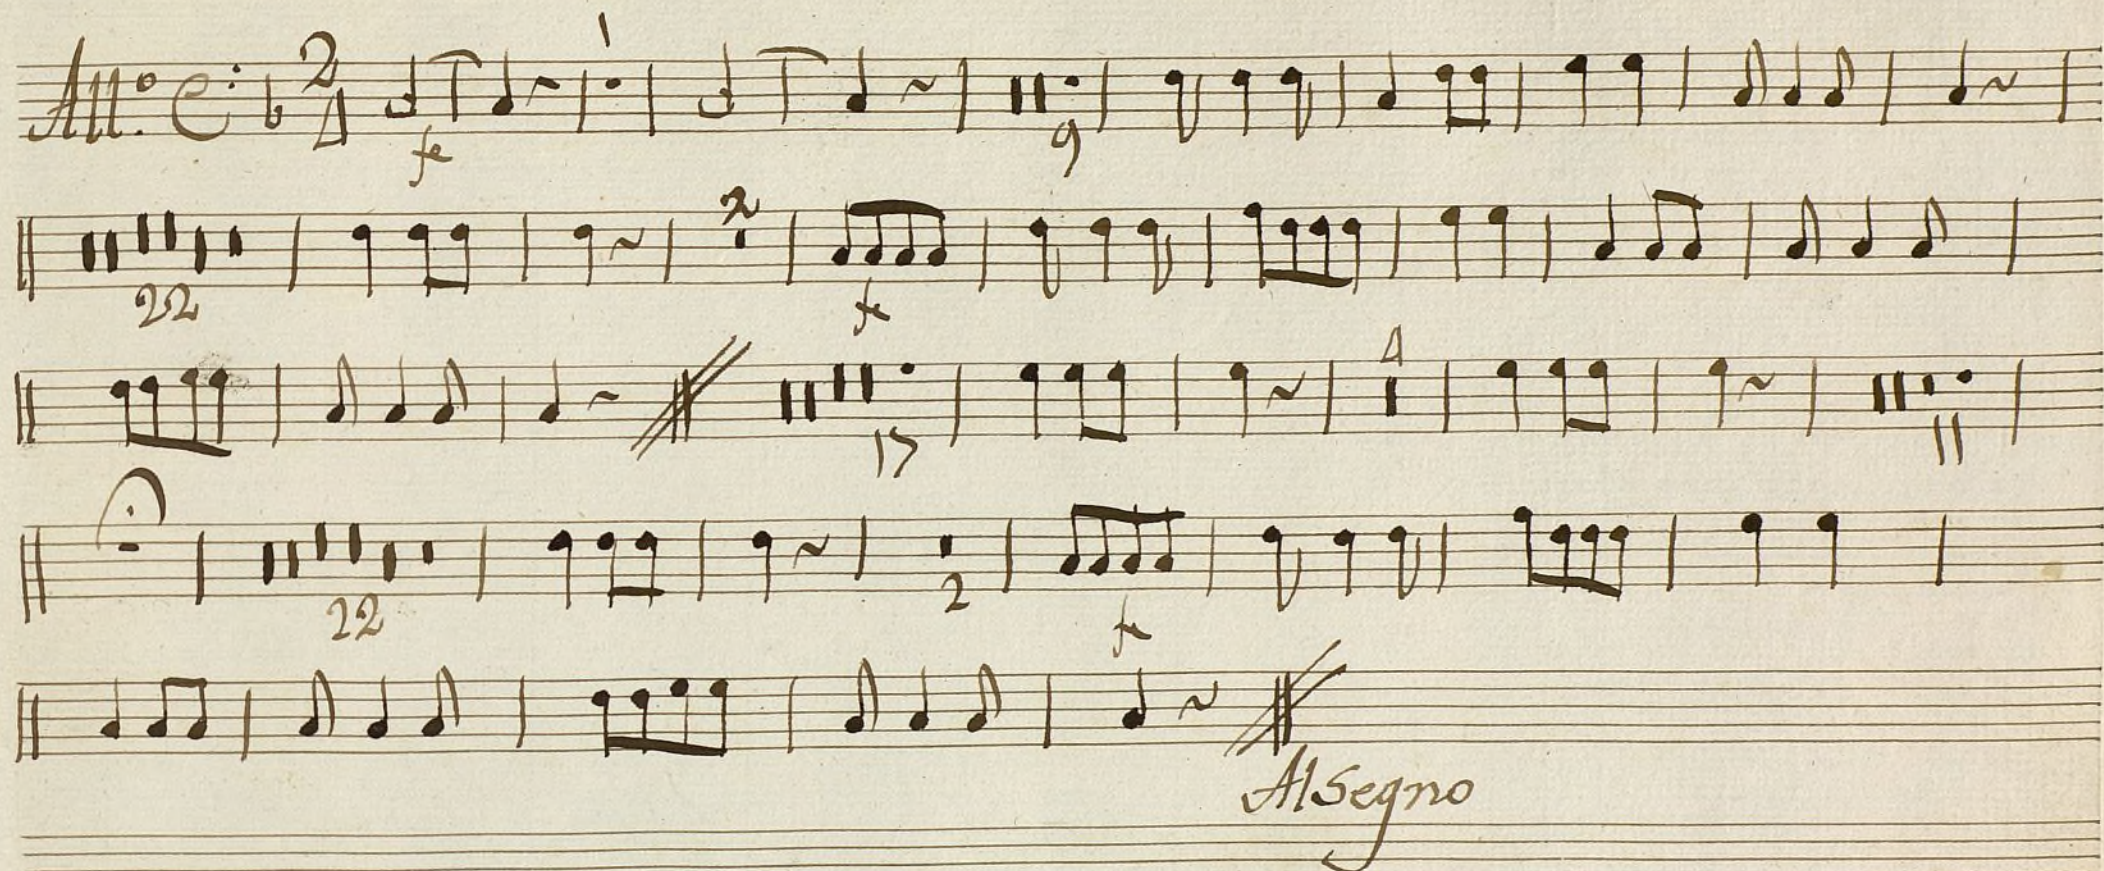 All.o 2/4 1
fe 9
2
22 f
4
17 11
22 2 f
Al Segno